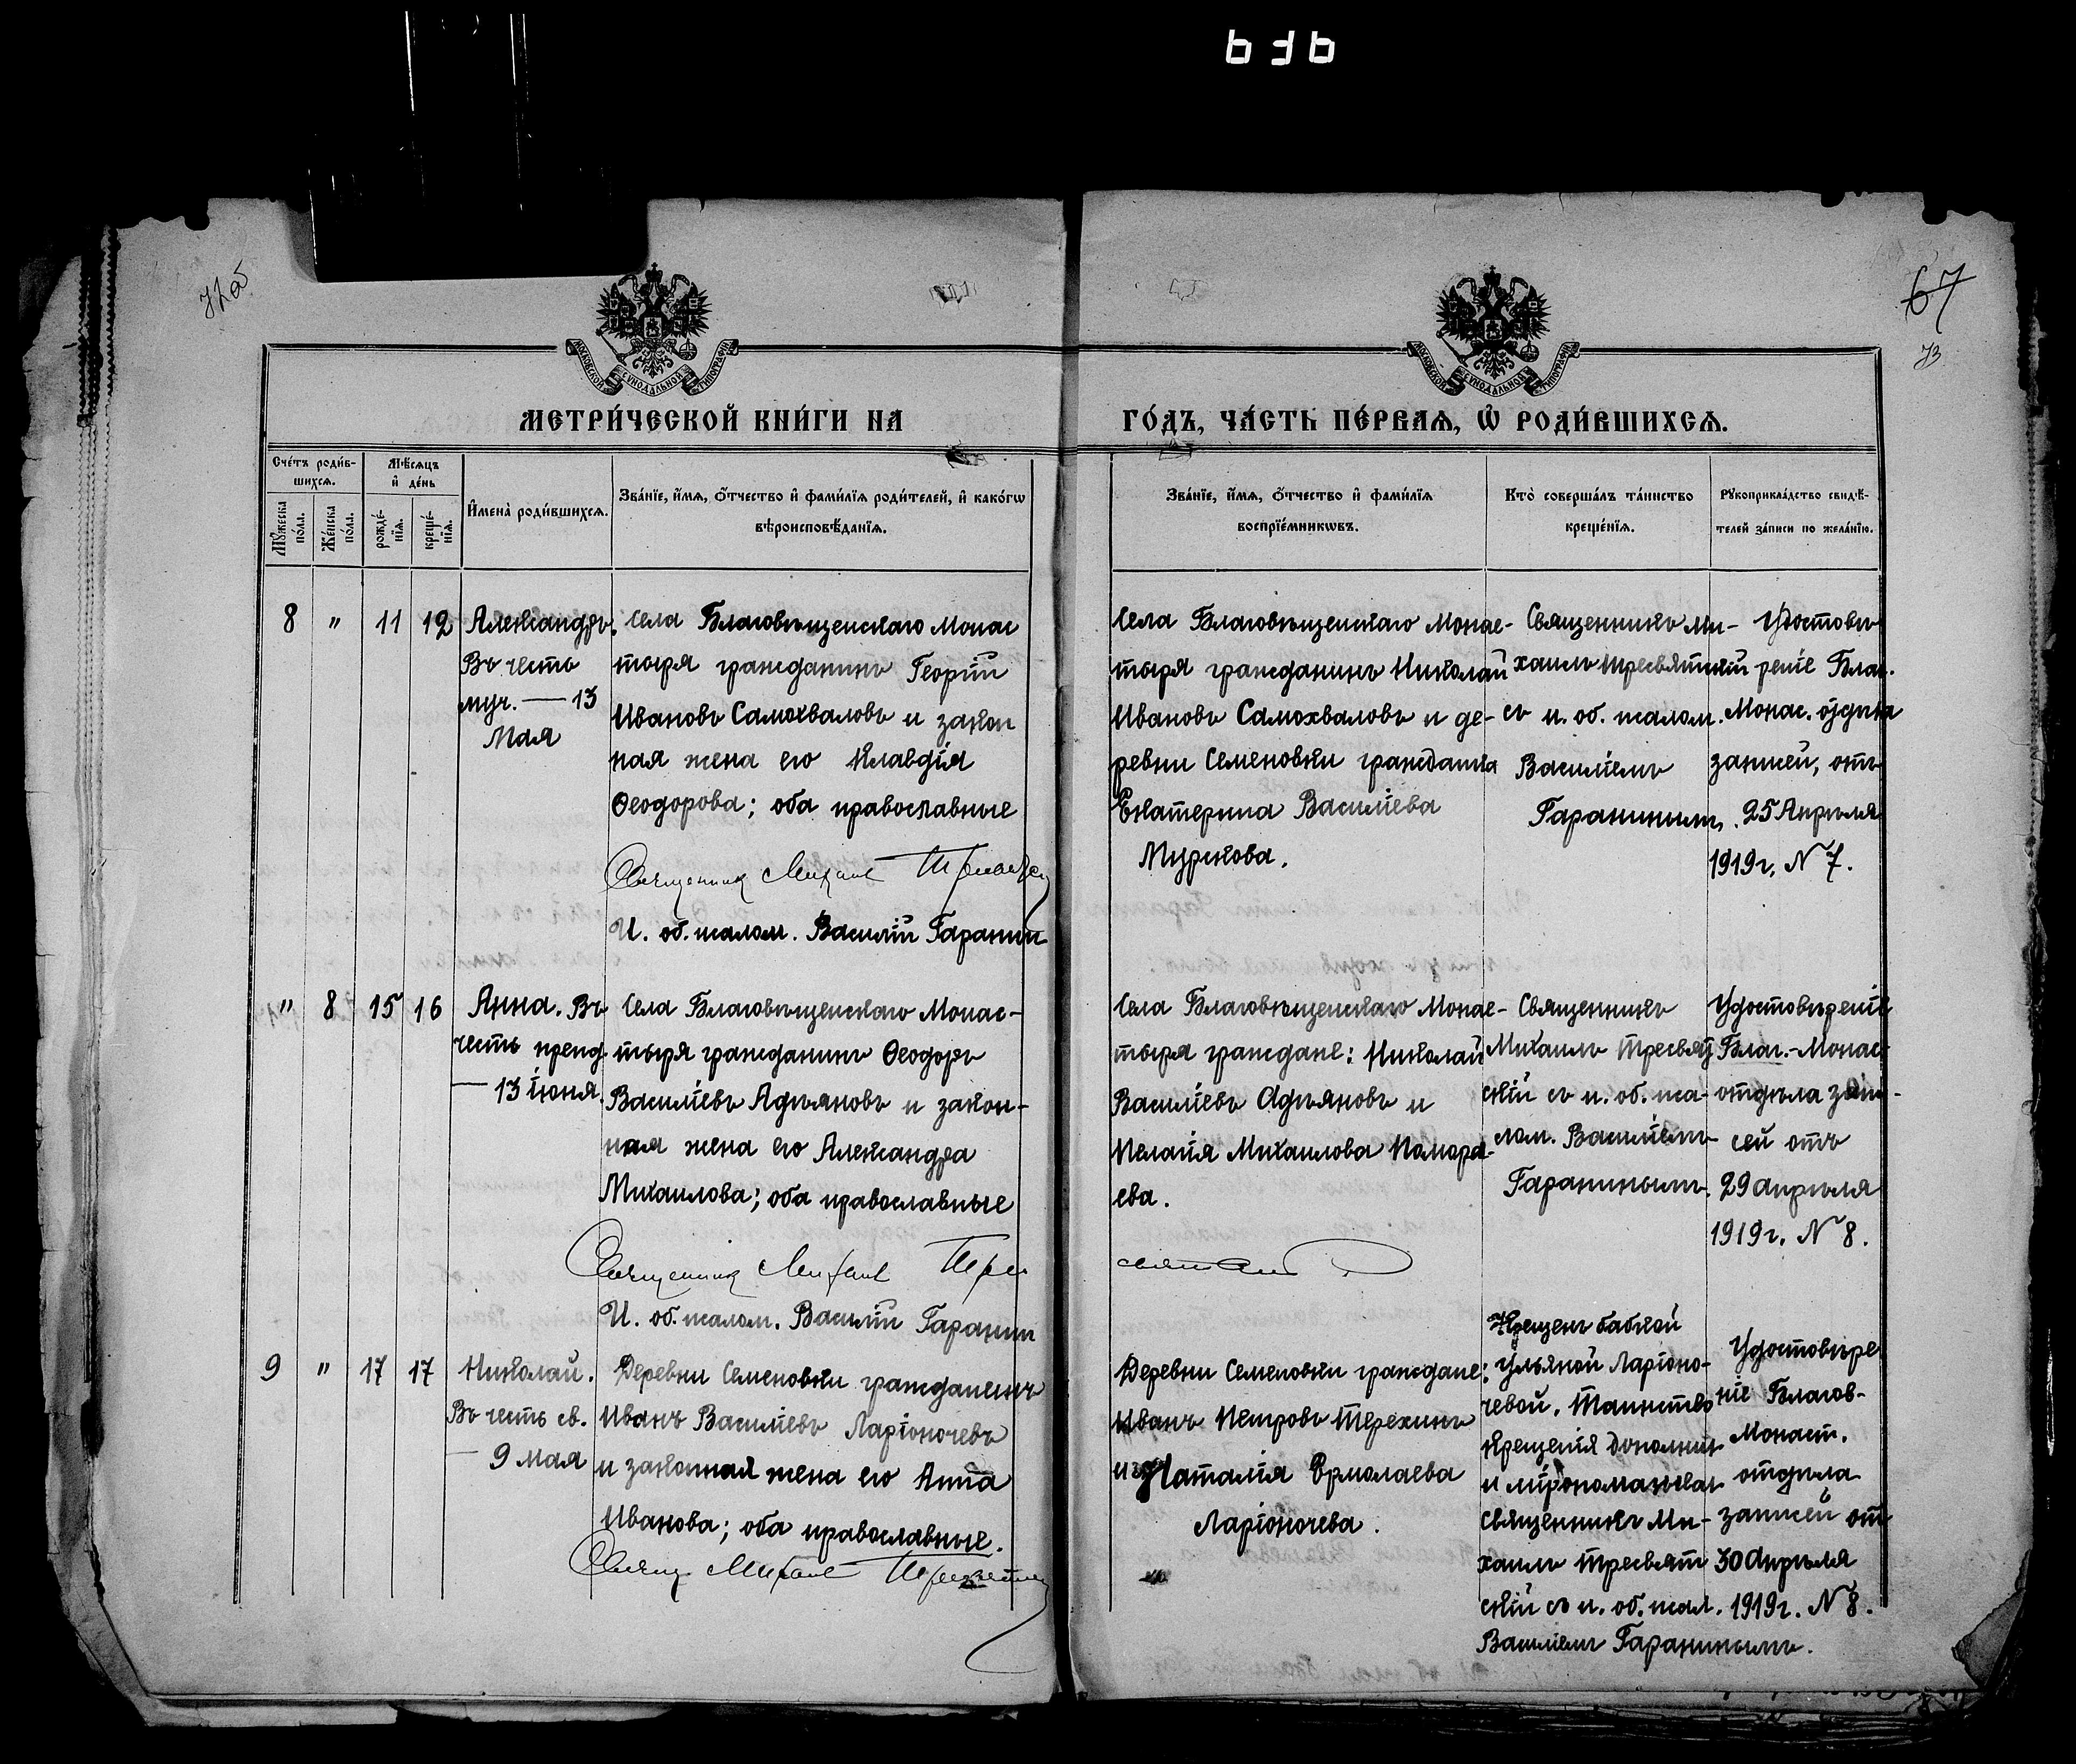 636
72об
67
73
МОСКОВСКОЙ СѴНОДАЛЬНОЙ ТИПОГРАФІИ
МОСКОВСКОЙ СѴНОДАЛЬНОЙ ТИПОГРАФІИ
МЕТРИ́ЧЕСКОЙ КНИ́ГИ НА
ГО́ДЪ, ЧА́СТЬ ПЕ́РВАѦ, Ѡ҆ РОДИ́ВШИХСѦ.
Сче́тъ роди́в-
шихсѧ.
Мꙋ́жеска по́ла.
Же́нска по́ла.
Мѣ́сѧцъ и҆ де́нь
рожде́-нїѧ.
креще́-нїѧ.
И҆мена̀ роди́вшихсѧ.
Зва́нїе, и҆́мѧ, ѻ҆́тчество и҆ фами́лїѧ роди́телей, и҆ како́гѡ
вѣроисповѣ́данїѧ.
Зва́нїе, и҆́мѧ, ѻ҆́тчество и҆ фами́лїѧ
воспрїе́мникѡвъ.
Кто̀ соверша́лъ та́инство
креще́нїѧ.
Рꙋкоприкла́дство свидѣ́-
телей за́писи по жела́нїю.
8 " 11 12
Александръ.
Въ честь
муч. — 13
Мая
Села Благовѣщенскаго Монас
тыря гражданинъ Георгій
Ивановъ Самохваловъ и закон
ная жена его Клавдія
Ѳеодорова; оба православные
Священник Михаил
И. об. псалом. Василій Гаранин
Села Благовѣщенскаго Монас-
тыря гражданинъ Николай
Ивановъ Самохваловъ и де-
ревни Семеновки гражданка
Екатерина Василіева
Мурскова.
Священникъ Ми-
хаилъ Тресвятскій
съ и. об. псалом.
Василіемъ
Гаранинымъ.
Удостовѣ
реніе Благ.
Монас. отдѣла
записей, отъ
25 Апрѣля
1919 г. № 7.
" 8 15 16
Анна. Въ
честь препд.
— 13 іюня.
Села Благовѣщенскаго Монас-
тыря гражданинъ Ѳеодоръ
Василіевъ Адъяновъ и закон-
ная жена его Александра
Михаилова; оба православные
Священник Михаил Тре
И. об. псалом. Василій Гаранин
Села Благовѣщенскаго Монас-
тыря граждане: Николай
Василіевъ Адъяновъ и
Пелагія Михаилова Помора-
ева.
святский
Священникъ
Михаилъ Тресвят
скій съ и. об. пса-
лом. Василіемъ
Гаранинымъ.
Удостовѣреніе
Благ.-Монас
отдѣла запи-
сей отъ
29 апрѣля
1919 г. № 8.
9 " 17 17
Николай.
Въ честь св.
— 9 мая
Деревни Семеновки гражданинъ
Иванъ Василіевъ Ларіоночевъ
и законная жена его Анна
Иванова; оба православные.
Свящ Михаил
Деревни Семеновки граждане:
Иванъ Петровъ Терехинъ
и Наталія Ермолаева
Ларіоночева.
Крещенъ бабкой
Ульяной Ларіоно-
чевой. Таинство
крещенія дополнил
и мѵропомазывал
священникъ Ми-
хаилъ Тресвят
скій съ и. об. псал.
Василіемъ Гаранинымъ.
Удостовѣре
ніе Благов-
Монаст.
отдѣла
записей отъ
30 Апрѣля
1919 г. № 8.